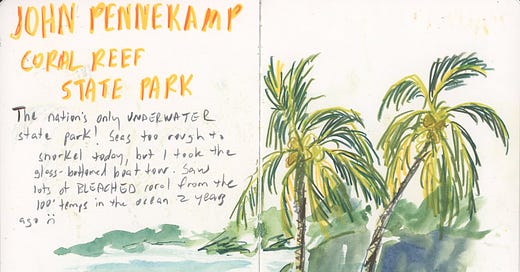 JOHN PENNEKAMP
CORAL REEF
STATE PARK
The nation's only UNDERWATER
state park! Seas too rough to
snorkel today, but I took the
glass-bottomed boat tour. Saw
lots of BLEACHED coral from the
100° temps in the ocean 2 years
ago